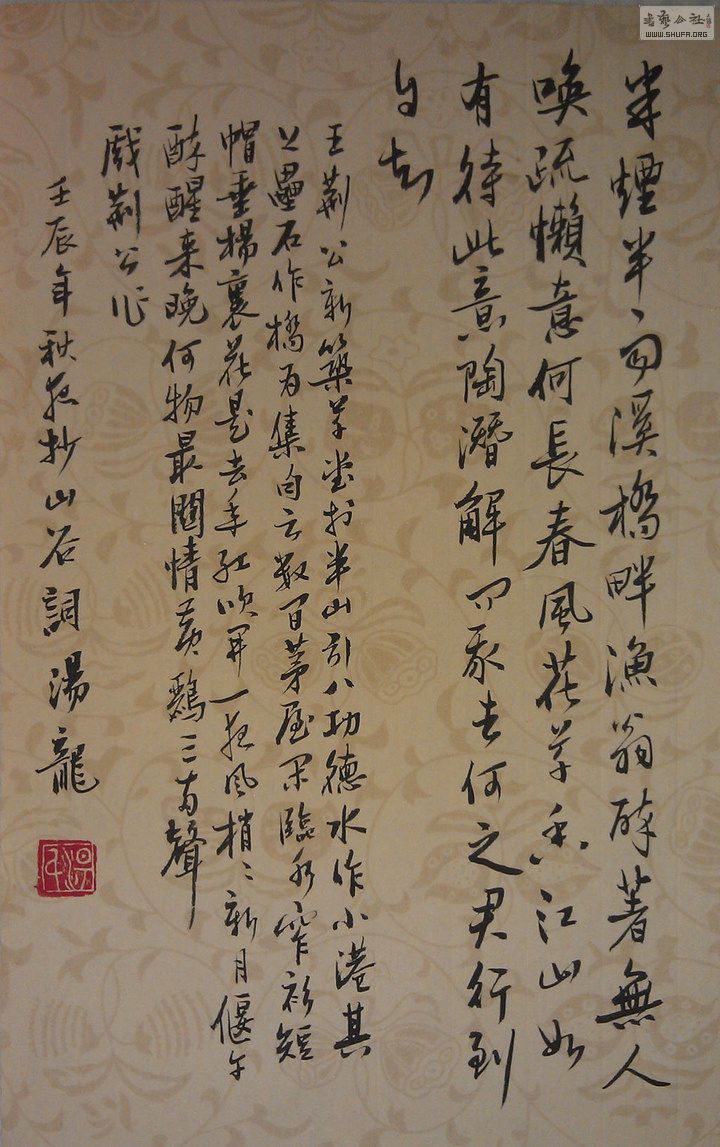 書藝公社
WWW.SHUFA.ORG
半煙半雨溪橋畔漁翁醉著無人
喚疏懶意何長春風花草香江山如
有待此意陶潛解問我去何之君行到
自知
王荊公新築草堂於半山引八功德水作小港其
上壘石作橋為集句云數間茅屋閑臨水窄衫短
帽垂楊裏花是去年紅吹開一夜風梢〻新月偃午
醉醒來晚何物最關情黃鸝三兩聲
戲荊公作
壬辰年秋夜抄山谷詞湯龍